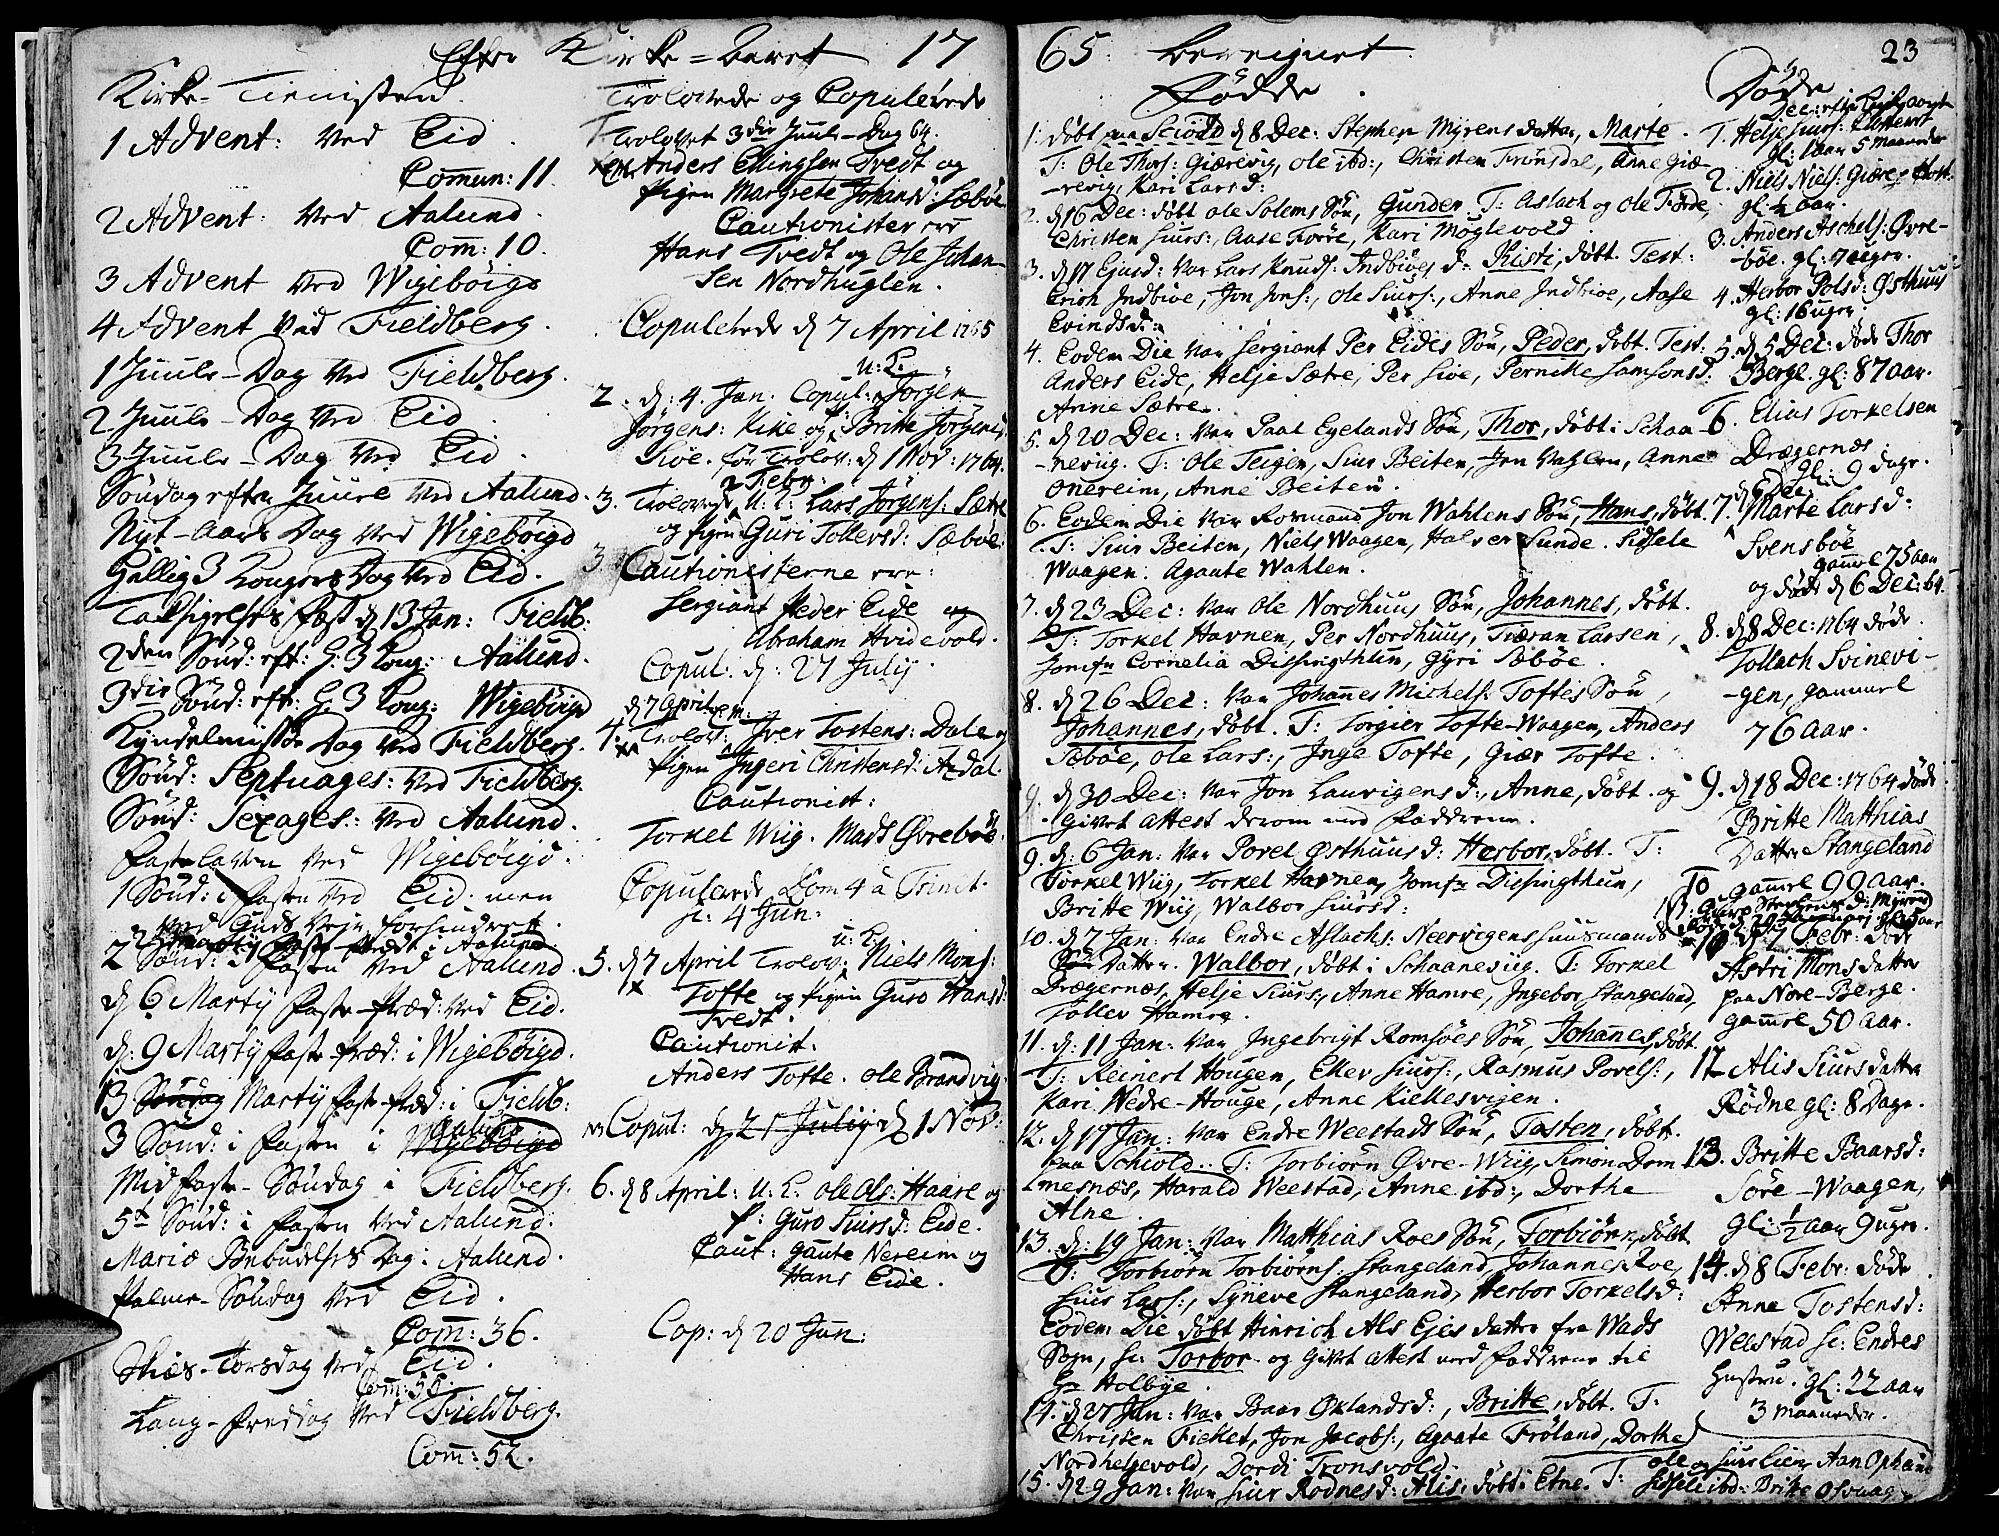 Efter Kirke=Aaret 17
Kirke-Tienisten
1 Advent: Ved Eid
Comun: 11.
2 Advent: Ved Aalund.
Com: 10.
3 Advent Ved Wigebøigd
4 Advent Ved Fieldberg.
1 Juule-Dag Ved Fieldberg.
2 Juule-Dag Ved Eid
3 Juule-Dag Ved Eid.
Søndag efter Juule Ved Aalund.
Nyt-Aars Dag Ved Wigebøigd
Hellig 3 Kongers Dag Ved Eid.
Taksigelses fæst d 13 Jan: Fieldb:
2den Sønd: eft: H. 3 Kong: Aalund.
3die Sønd: eft: H. 3 Kong: Wigebøigd
Kyndelmisse Dag Ved Fieldberg.
Sønd: Septuages: Ved Fieldberg.
Sønd: Sexages: Ved Aalund.
Fastelaven Ved Wigebøigd.
1 Sønd: i Fasten Ved Eid. men
Ved Guds Vejr forhindret.
2 Sønd: i Fasten Ved Aalund
d 6 Martij Faste-Præd: Ved Eid.
d: 9 Martij Faste-Præd: i Wigebøigd.
13 Søndag Martij Faste-Præd: i Fieldb:
Aalund
3 Sønd: i Fasten i Wigebøigd
Mid faste-Søndag i Fieldberg.
5te Sønd: i Fasten Ved Aalund.
Mariæ Bebudelses Dag i Aalund.
Palme-Søndag Ved Eid.
Com: 36.
Skiær-Torsdag Ved Eid.
Com: 55.
Lang-Fredag Ved Fieldberg.
Com: 52.
Trolovede og Copulerede
Trolovet 3die Juule-Dag 64.
Anders Ellingsen Tvedt og
Pigen Margrete Johansd: Sæbøe
Cautionister ere
Hans Tvedt og Ole Johan-
sen Nordhuglen.
Copulerede d 7 April 1765
U: K.
2. d: 4. Jan. Copul: Jørgen
Jørgens: Kike og P: Britte Jørgensd
Sioe. før Trolov: d 1 Nov: 1764.
2 Febr:
3. Trolovet U: K: Lars Jørgens: Sætre
og Pigen Guri Tollevsd: Sæbøe.
Cautionisterne ere:
Sergiant Peder Eide og
Abraham Hvidevold.
Copul: d: 27 Julij.
d 7 April
4. Trolov: Iver Tostens: Dale og
Pigen Ingeri Christensd: Axdal.
Cautionist:
Torkel Wiig. Mads Øvrebøe.
Copulerede Dom 4 à Trinit.
sc: 4 Jun:
U: K.
5. d 7 April Trolov: Niels Mons:
Tofte og Pigen Guro Hansd:
Tvedt.
Cautionist.
Anders Tofte. Ole Brandvig.
Copul: d 21 Julij d 1 Nov:
6. d 8 April: U: K. Ole Ols: Haare og
P: Guro Siursd: Eide.
Caut: Gaute Nereim og
Hans Eide.
Cop: d 20 Jun:
65. beregnet 23
Fødde.
1. døbt paa Sciold d 8 Dec: Stephen Myrens datter, Marte.
T: Ole Thors: Giærevig, Ole ibd:, Christen Trønsdal, Anne Giæ-
revig, Kari Larsd:
2. d 16 Dec: døbt Ole Solems Søn, Gunder. T: Aslach og Ole Førde,
Christen Siurs:, Aase Førre, Kari Møglevold.
3. d 17 Ejusd: Var Lars Knuds: Indbioes d: Kristi, døbt. Test:
Erich Indbioe, Jon Jons:, Ole Siurs:, Anne Indbioe, Aase
Evindsd:
4. Eodem Die Var Sergiant Per Eides Søn, Peder, døbt. Test:
Anders Eide, Helje Sætre, Per Sioe, Pernike Samsonsd:
Anne Sætre.
5. d 20 Dec: Var Paal Egelands Søn, Thor, døbt i Schaa-
neviig. T: Ole Teigen, Siur Beiten, Jon Vahlen, Anne
Onereim, Anne Beiten.
6. Eodem Die Var Rormand Jon Wahlens Søn, Hans, døbt.
T: Siur Beiten, Niels Waagen, Halver Sunde. Sidsele
Waagen. Agaate Wahlen.
7. d 23 Dec: Var Ole Nordhuus Søn, Johannes, døbt.
T: Torkel Havnen, Per Nordhuus, Tiæran Larsen,
Jomfr Cornelia Dissingthun, Gyri Sæbøe.
8. d 26 Dec: Var Johannes Michels: Toftes Søn,
Johannes, døbt. T: Torgier Tofte-Waagen, Anders
Sæbøe, Ole Lars:, Inge Tofte, Giær Tofte.
9. d 30 Dec: Var Jon Laurigens d:, Anne, døbt. og
givet attest derom med Fadderne.
9. d: 6 Jan: Var Povel Østhuus d: Herbor, døbt. T:
Torkel Wiig, Torkel Havnen, Jomfr Dissingthun,
Britte Wiig, Walbor Siursd:
10. d 7 Jan: Var Endre Aslachs: Neervigens huusmands
Søn Datter. Walbor, døbt i Schaaneviig. T: Torkel
Drægernæs, Helje Siurs:, Anne Hamre, Ingebor Stangeland,
Tollev Hamre.
11. d: 11 Jan: Var Ingebrigt Romsøes Søn, Johannes, døbt
T: Reinert Hougen, Elev Siurs:, Rasmus Povels:,
Kari Nedre-Houge, Anne Kielkesvigen.
12. d 17 Jan: Var Endre Weestads Søn, Tosten, døbt.
paa Schiold. T: Torbiørn Øvre-Wiig, Simon Dom
mesnæs, Harald Weestad, Anne ibd:, Dorthe
Alne
13. d: 19 Jan: Var Matthias Roes Søn, Torbiørn, døbt
T: Torbiørn Torbiørns: Stangeland, Johannes Roe,
Siur Lars:, Syneve Stangeland, Herbor Torkelsd:
Eodem Die døbt Hinrich Als Ejes datter fra Wads
Sogn, sc: Torbor og givet attest med Fadderne til
Hr Holbye.
14. d 27 Jan: Var Baar Øklands d:, Britte, døbt. T:
Christen Fickel, Jon Jacobs:, Agaate Frøland, Dorthe
Nordhelgevold, Dordi Tronsvold.
15. d 29 Jan: Var Siur Rødnes d: Alis, døbt i Etne. T: Ole og Siur Lien, Aan Ophaim
Sidsele ibd: Britte Osvaag
Døde
1. Helje Siurs:
gl: 1 aar 5 maaneder
2. Niels Niels: Giære-
gl: ½ aar.
3. Anders Aschels: Øvre-
bøe. gl: 7 uger.
4. Herbor Polsd: Østhuus
gl: 16 uger.
5. d 5 Dec: døde Thor
Berge gl: 87 aar.
6. Elias Torkelsen
Drægernæs
gl: 9 dage.
d 6 Dec:
7. Marte Larsd:
Svensbøe
gamel 75 aar
og døde d 6 Dec: 64.
8. d 8 Dec: 1764 døde
Tollach Svinevi-
gen, gammel
76 aar.
9. d 18 Dec: 1764 døde
Britte Matthias
Datter Stangeland
gamel 99 aar.
10. d 7 Febr: døde
Astri Mons datter
paa Nore-Berge.
gamel 50 aar.
12 Alis Siurs datter
Rødne gl: 8 Dage.
13. Britte Baarsd:
Søre-Waagen,
gl: ½ aar 9 uger.
14. d 8 Febr: døde
Anne Tostensd:
Weestad sc: Endres
Hustru. gl: 22 aar
3 maaneder.